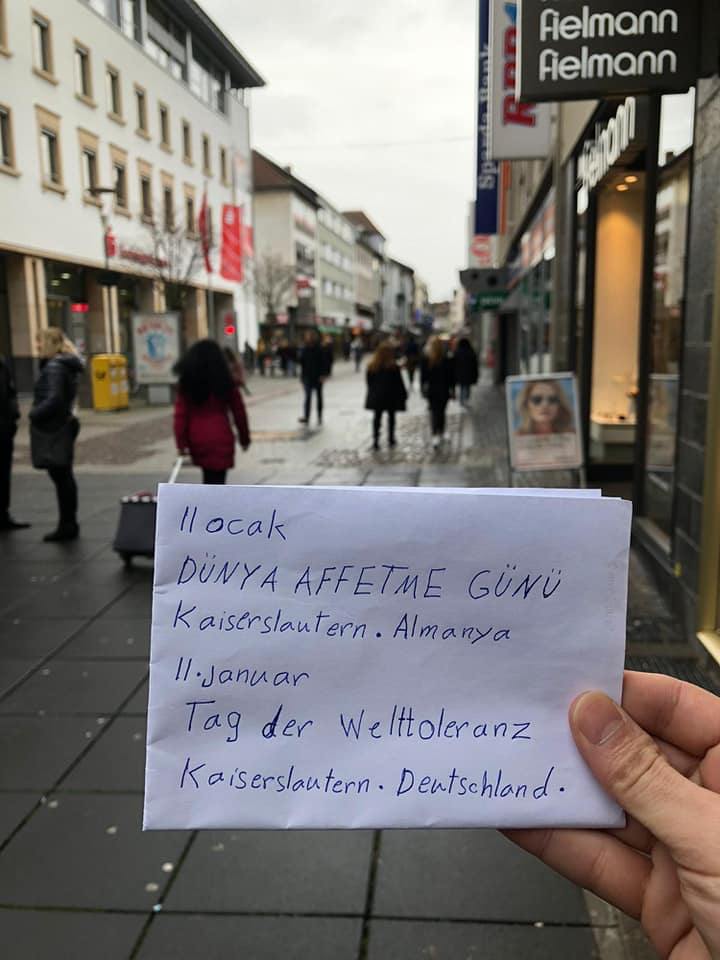 fielmann
fielmann
fielmann
Sparda-Bank
11 ocak
DÜNYA AFFETME GÜNÜ
Kaiserslautern. Almanya
11. Januar
Tag der Welttoleranz
Kaiserslautern. Deutschland.